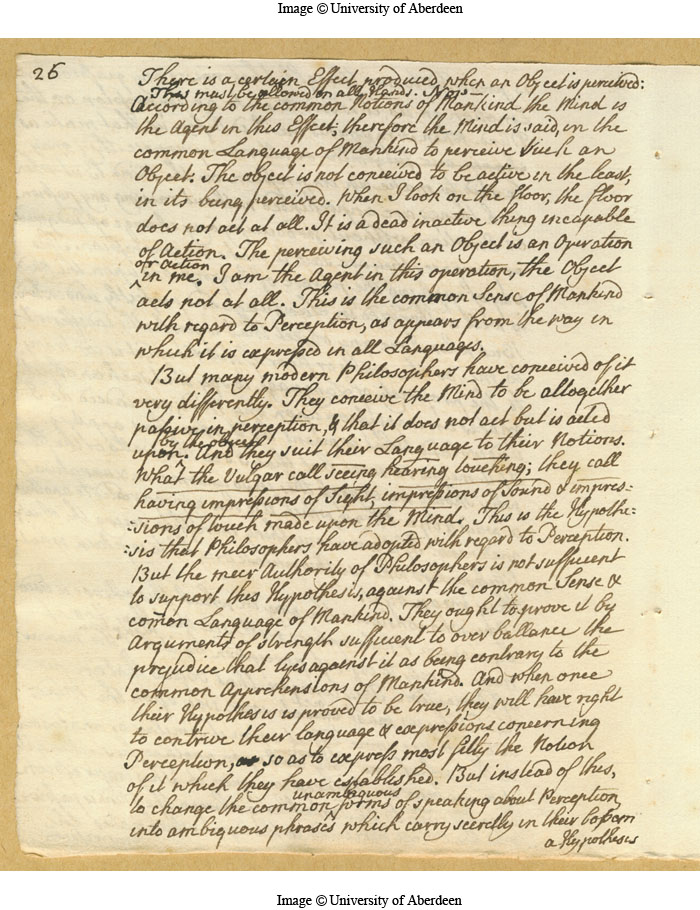 Image © University of Aberdeen
26
There is a certain Effect produced when an Object is perceived:
This must be allowed on all Hands. Now
According to the common Notions of Mankind the Mind is
the Agent in this Effect; therefore the Mind is said, in the
common Language of Mankind to perceive such an
Object. The object is not conceived to be active in the least,
in its being perceived. When I look on the floor, the floor
does not act at all. It is a dead inactive thing incapable
of Action. The perceiving such an Object is an Operation
or action
in me. I am the Agent in this operation, the Object
acts not at all. This is the common Sense of Mankind
with regard to Perception, as appears from the way in
which it is expressed in all Languages.
But many modern Philosophers have conceived of it
very differently. They conceive the Mind to be altogether
passive in perception, & that it does not act but is acted
by the object
upon. And they suit their Language to their Notions.
What the Vulgar call seeing hearing touching; they call
having impressions of Sight, impressions of Sound & impres=
=sions of touch made upon the Mind. This is the Hypothe=
=sis that Philosophers have adopted with regard to Perception.
But the meer Authority of Philosophers is not sufficient
to support this Hypothesis, against the common Sense &
comon Language of Mankind. They ought to prove it by
Arguments of strength sufficient to over ballance the
prejudice that lyes against it as being contrary to the
common Apprehensions of Mankind. And when once
their Hypothesis is proved to be true, they will have right
to contrive their language & expressions concerning
Perception, so as to express most fitly the Notion
of it which they have established. But instead of this,
unambiguous
to change the common forms of speaking about Perception
into ambiguous phrases which carry secretly in their bosom
a Hypothesis
Image © University of Aberdeen